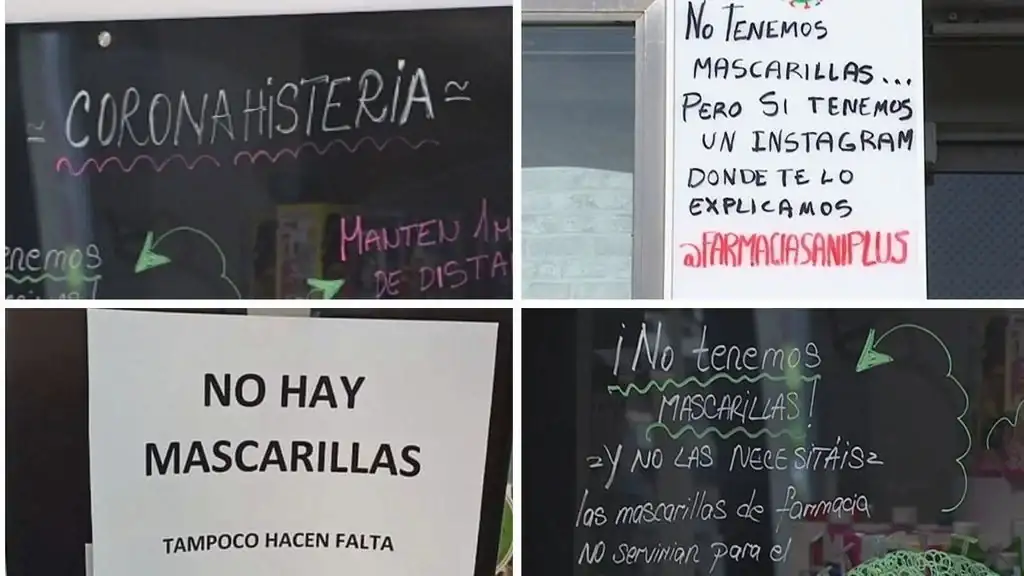 ≃ CORONAHiSTERiA ≃
MANTEN 1M
DE DISTA
enemos
No TENEMOS
MASCARILLAS...
PERO SI TENEMOS
UN INSTAGRAM
DONDE TE LO
EXPLICAMOS
@FARMACIASANIPLUS
NO HAY
MASCARILLAS
TAMPOCO HACEN FALTA
¡No tenemos
MASCARiLLAS!
Y NO LAS NECESITÁIS
las mascarillas de farmacia
NO servirian para el